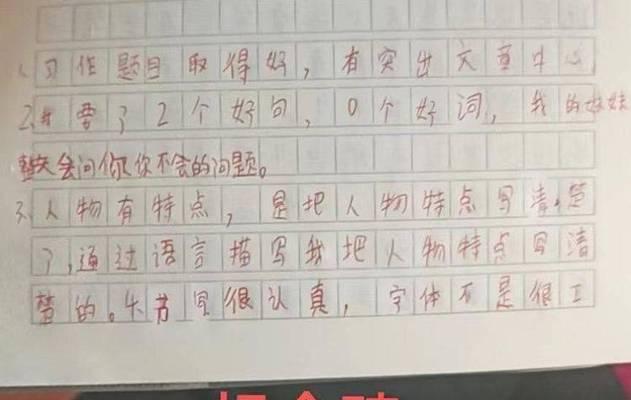 1.习作题目取得好，有突出文章中心
2.共要了2个好句，0个好词，我的妹妹
整天会问你你不会的问题。
3.人物有特点，是把人物特点写清楚
了，通过语言描写我把人物特点写清
楚的。4.书写很认真，字体不是很工